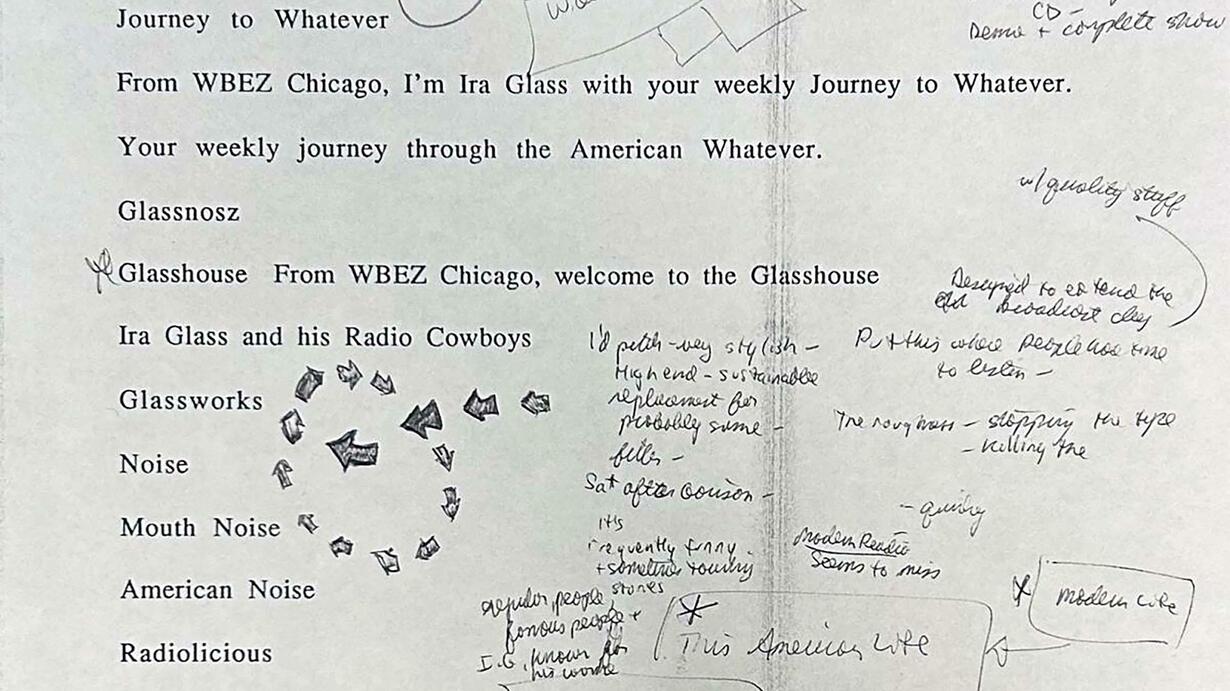 Journey to Whatever
CD -
Demo + complete show
From WBEZ Chicago, I'm Ira Glass with your weekly Journey to Whatever.
Your weekly journey through the American Whatever.
w/ quality staff
Glassnosz
Glasshouse From WBEZ Chicago, welcome to the Glasshouse
Designed to extend the
broadcast day
Ira Glass and his Radio Cowboys
I'd pitch - very stylish -
High end - sustainable
replacement for
probably some -
filler -
Sat after
Put this where people have time
to listen -
Glassworks
The roughness - stopping the type
- killing the
Noise
- quirky
Mouth Noise
It's
frequently funny
+ sometimes
stories
Modern Radio
Seems to miss
American Noise
regular people,
famous people +
I.G., known for
his work
* Modern Life
* This American Life
Radiolicious